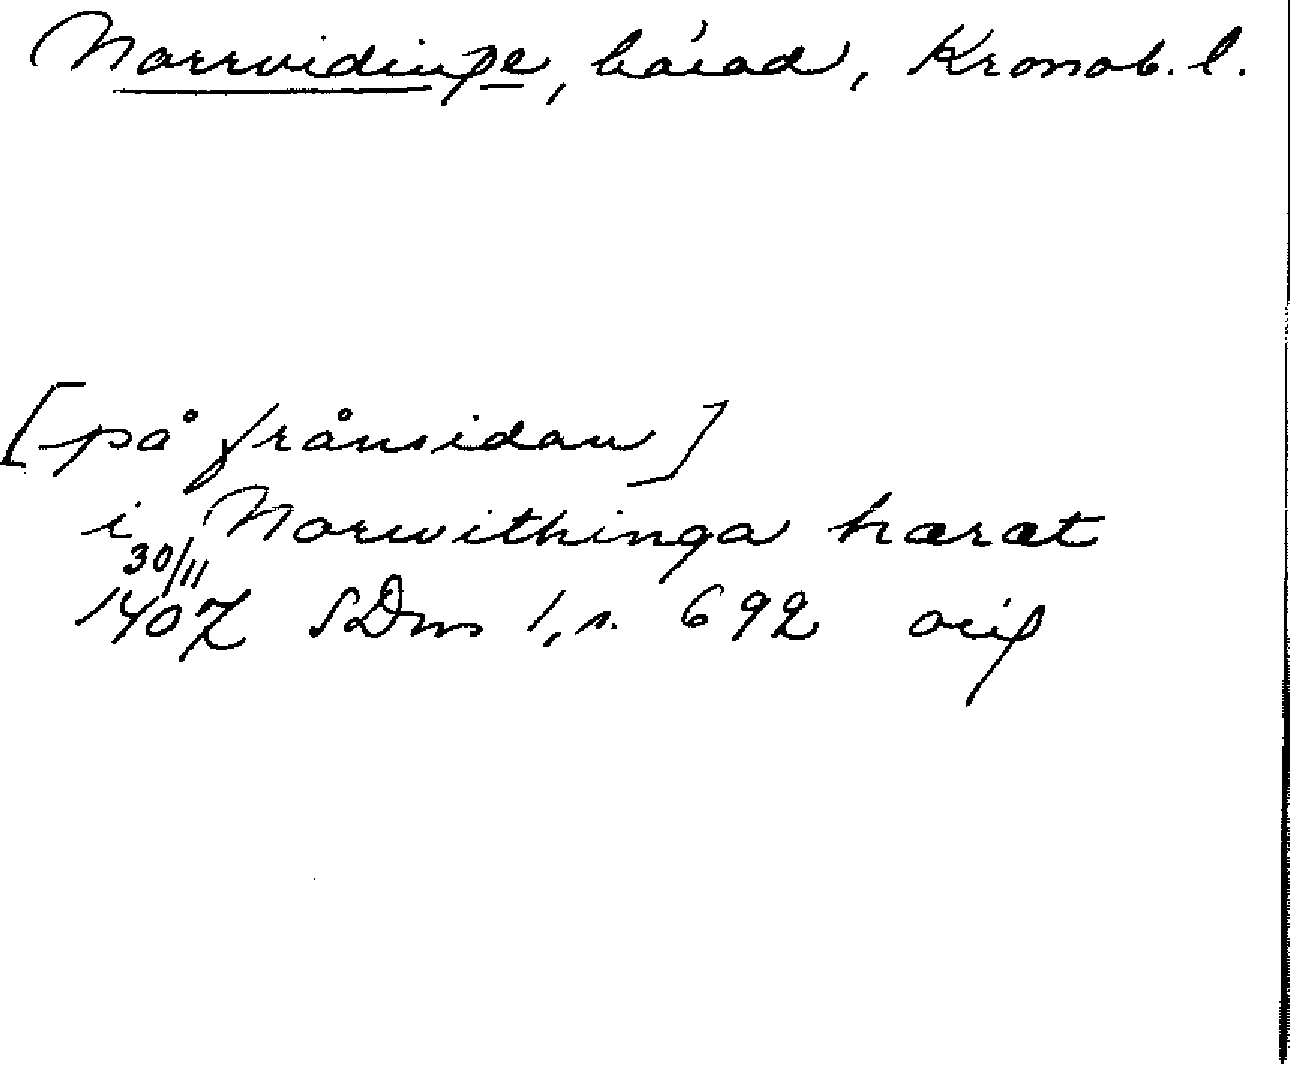 Norrvidinge, härad, Kronob. l.
[på frånsidan]
i Norwithinga hærat
30/11
1407 SDns 1, s. 692 orig